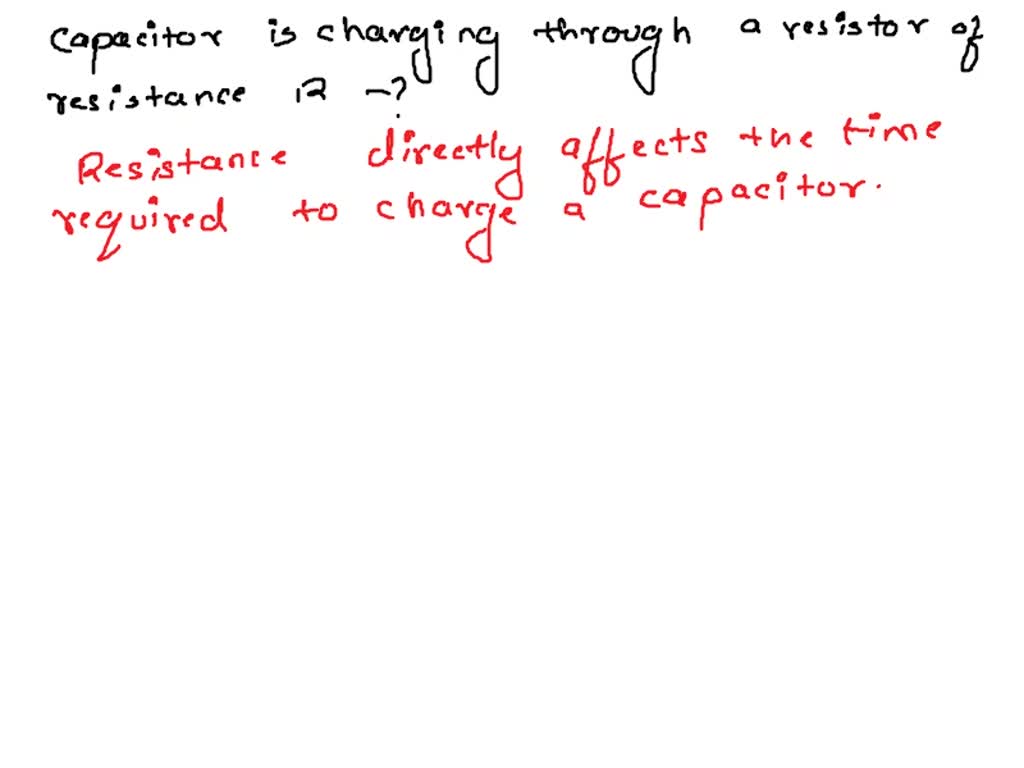 capacitor is charging through a resistor of
resistance R -?
Resistance directly affects the time
required to charge a capacitor.